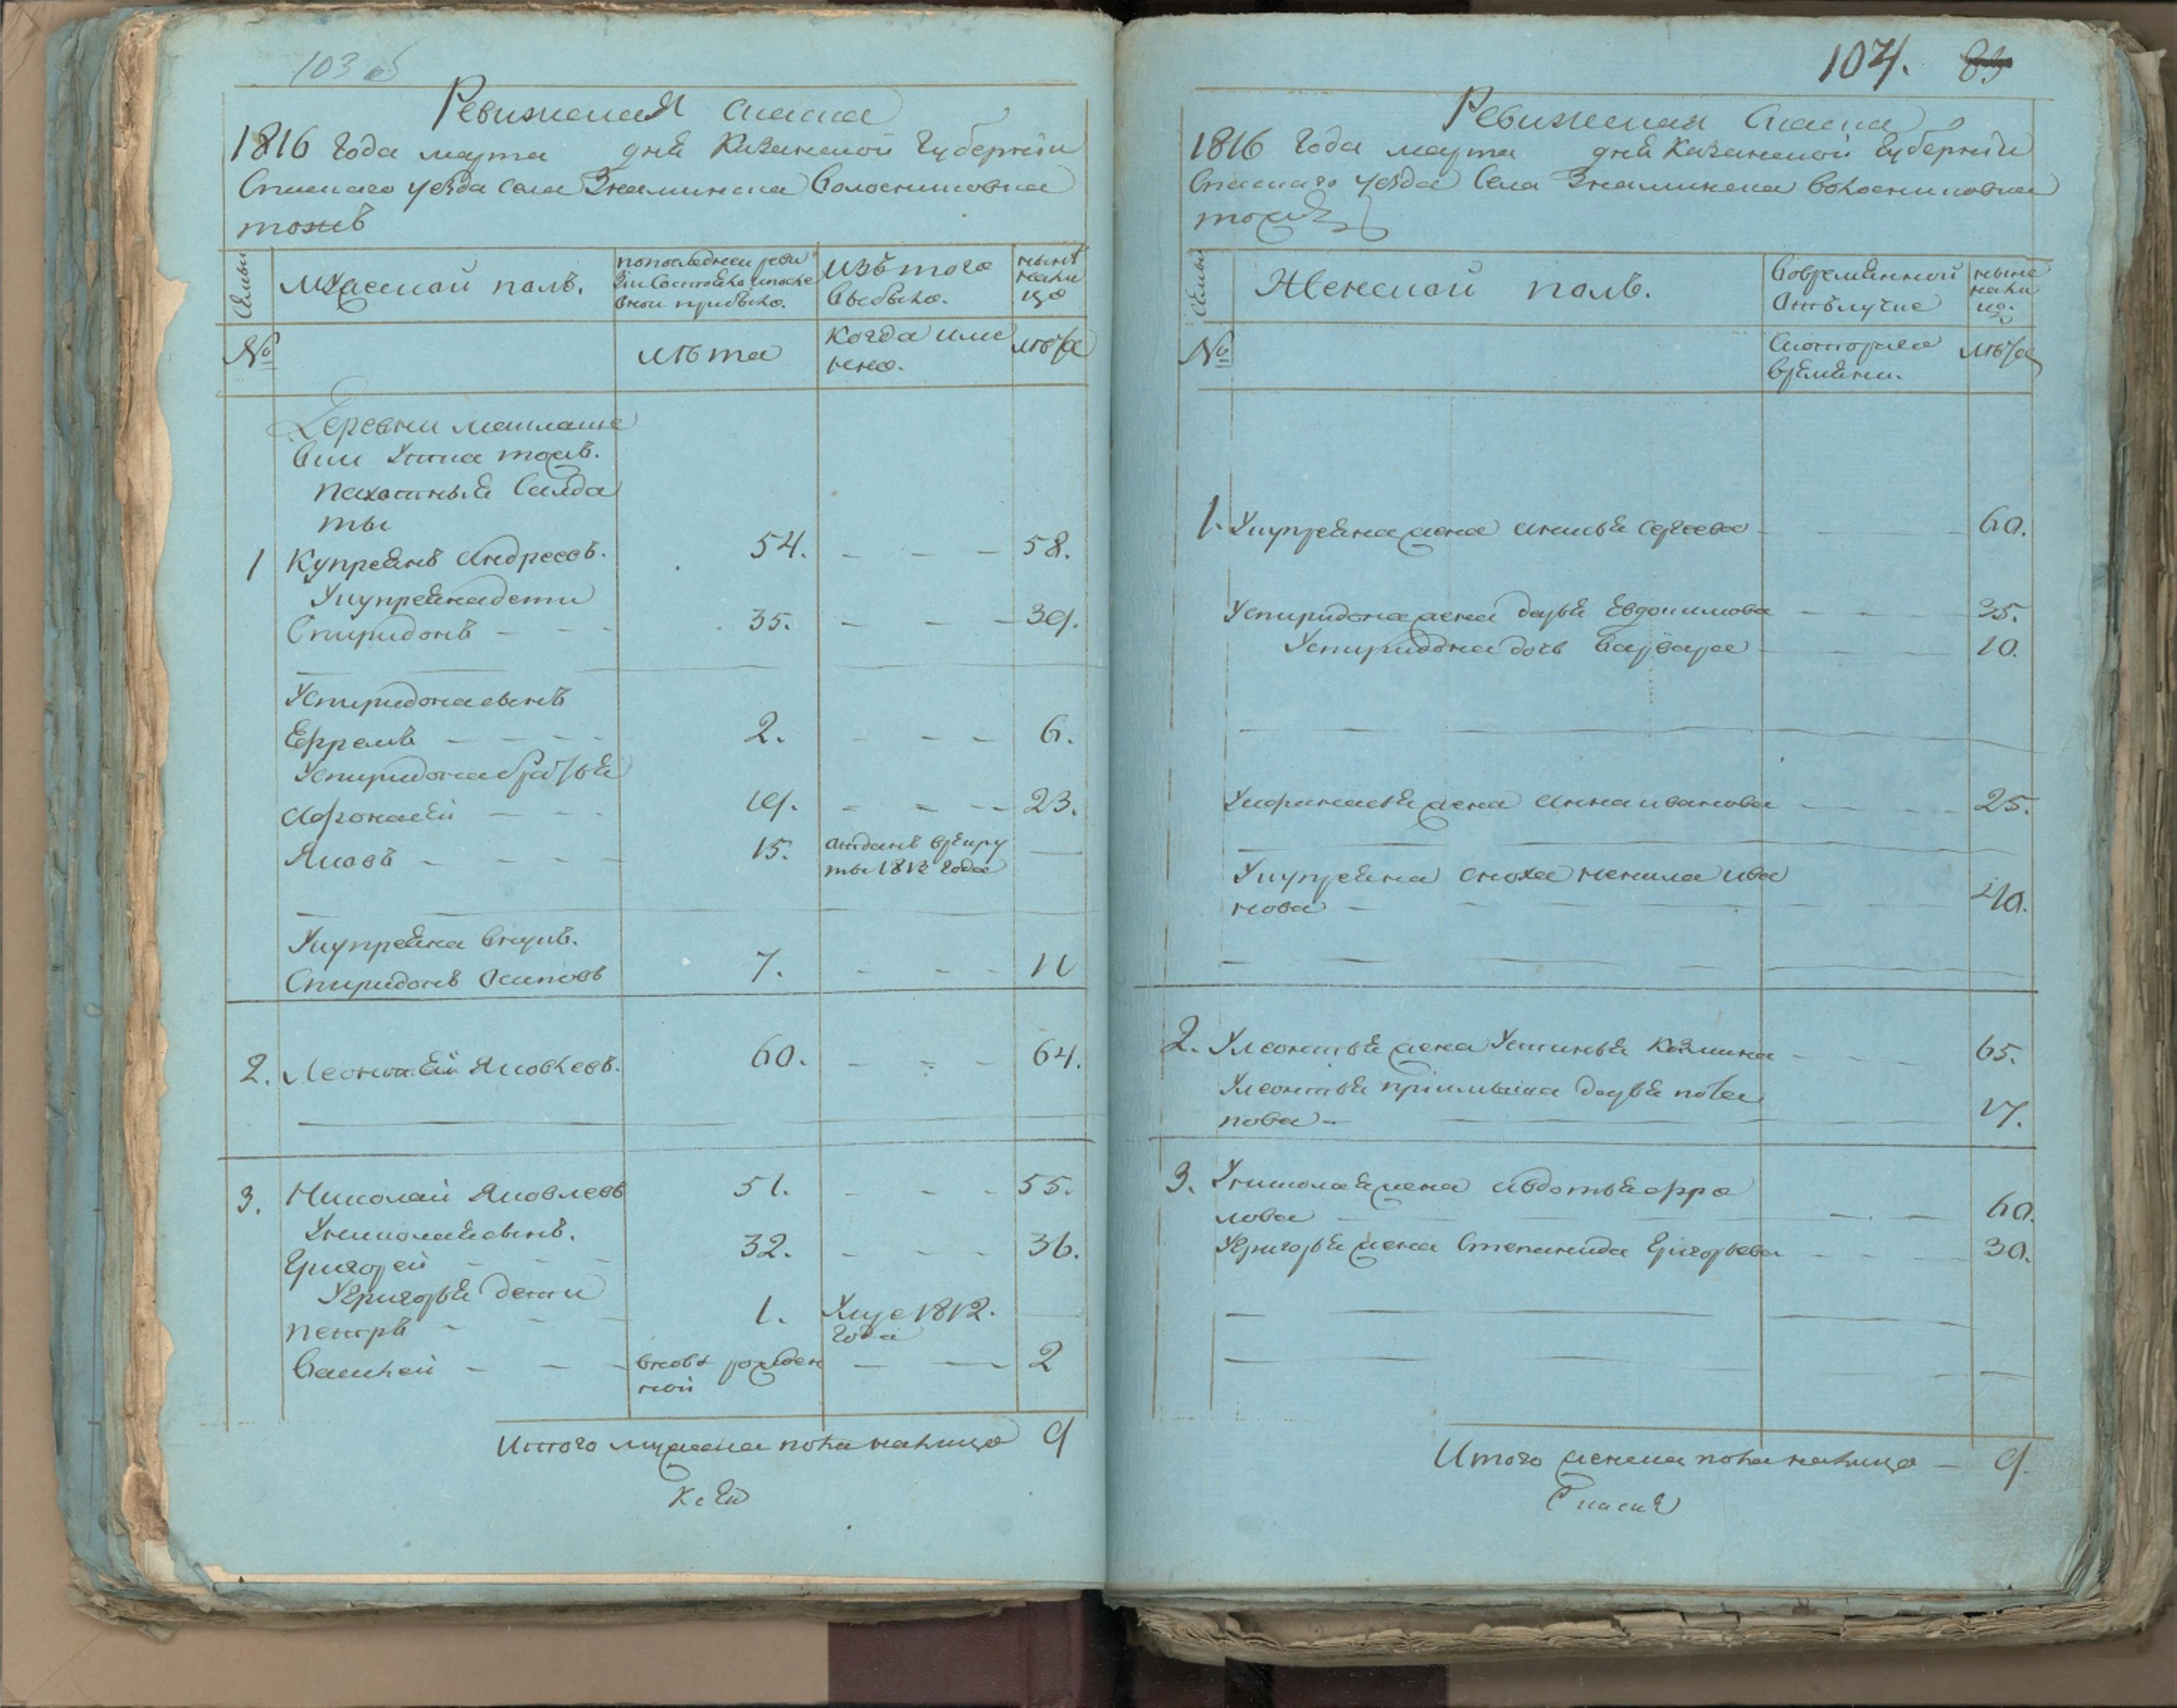 103 об
Ревижская сказка
1816 Года марта дня Казанской Губернии
Спаскаго уезда села Знаминска Волостиновка
тожъ
Семьи
мужской полъ.
попоследнеи реви
зии Состояло ипосле
онои прибыло.
Изъ того
выбыло.
ныне
нали
цо
№
лѣта
когда име
нно.
лѣта
Деревни
тожъ.
пахотныя Салда
ты
1 Купреянъ Андреевъ. 54. - - - 58.
Укупреяна дети
Спиридонъ - - - 35. - - - 39.
Успиридона сынъ
Ефремъ - - - - 2. - - - 6.
Успиридона братья
Афонасей - - - 19. - - - 23.
Яковъ - - - - 15. отданъ врекру
ты 1812 Года
Укупреяна внукъ.
Спиридонъ Осиповъ 7. - - - 11
2. Леонтей Яковлевъ. 60. - - - 64.
3. Николай Яковлевъ 51. - - - 55.
Униколая сынъ.
Григорей - - - 32. - - - 36.
Угригорья дети
петръ - - - 1. Умре 1812.
Года
Василей - - - вновь рожден - - 2
ной
Итого мужска пола налицо 9
104. 83
Ревижская Сказка
1816 Года марта дня Казанской Губернии
Спаскаго уезда Села Знаминска волостиновка
тожъ
Семьи
Женской полъ.
Вовременной
Отлучке
ныне
нали
цо.
№
Скоторого
времени.
лѣта
1. Укупреяна жена Аксинья Сергеева - - - 60.
Успиридона жена дарья Евдокимова - - - 35.
Успиридона дочь Варвара - - - 10.
Уафанасья жена Анна иванова - - - 25.
Укупреяна сноха ненила ива
нова - - - - 40.
2. Улеонтья жена Устинья Козмина - - - 65.
Улеонтья приимышка дарья пота
пова - - - 17.
3. Униколая жена Авдотья фро
лова - - - - 60.
Угригорья жена Степанида Григорьева - - - 30.
Итого женска пола налицо - 9.